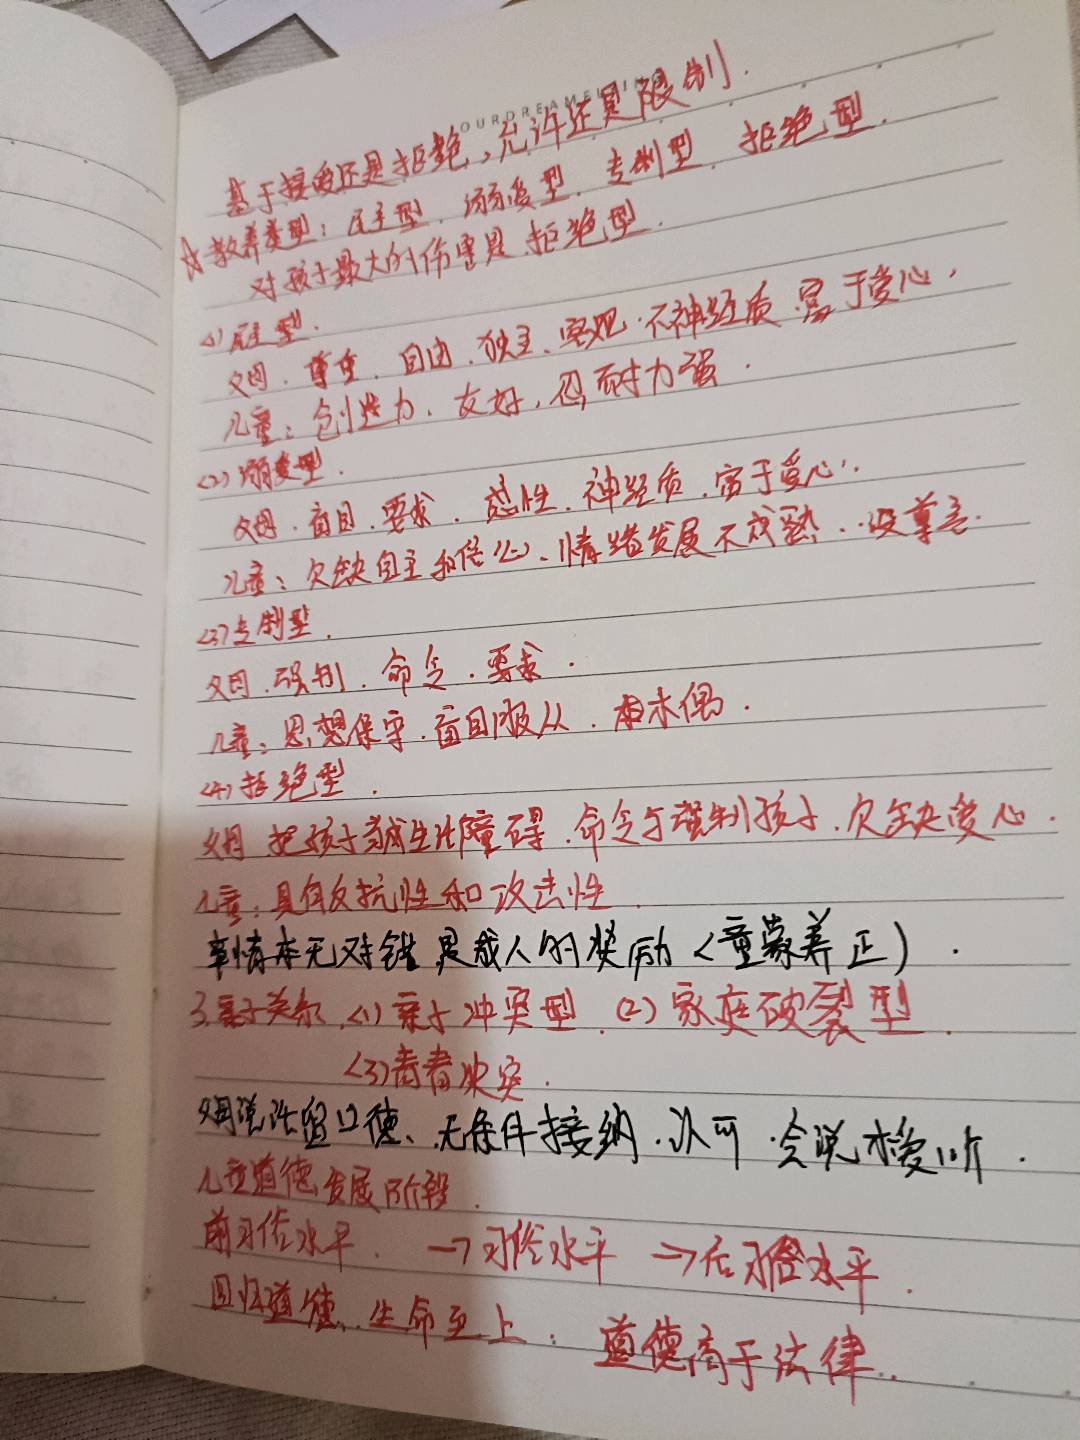 OURDREAMELING
基于接受还是拒绝,允许还是限制.
☆教养类型:民主型.溺爱型.专制型.拒绝型.
对孩子最大的伤害是.拒绝型.
(1)民主型.
父母.尊重.自由.独主.客观.不神经质.富于爱心,
儿童:创造力.友好,忍耐力强.
(2)溺爱型.
父母.盲目.要求.感性.神经质.富于爱心.
儿童:欠缺自主和信心.情绪发展不成熟..没尊老.
(3)专制型.
父母.强制.命令.要求.
儿童:思想保守.盲目服从.木偶.
(4)拒绝型.
父母 把孩子 障碍.命令与强制孩子.欠缺爱心.
儿童:具有反抗性和攻击性
事情本无对错 是成人的奖励(童蒙养正).
3.亲子关系.(1)亲子冲突型.(2)家庭破裂型.
(3)青春冲突.
父母说话留口德、无条件接纳.认可.会说才爱听.
儿童道德发展阶段.
前习俗水平. →习俗水平 →后习俗水平.
回归道德、生命至上:道德高于法律..